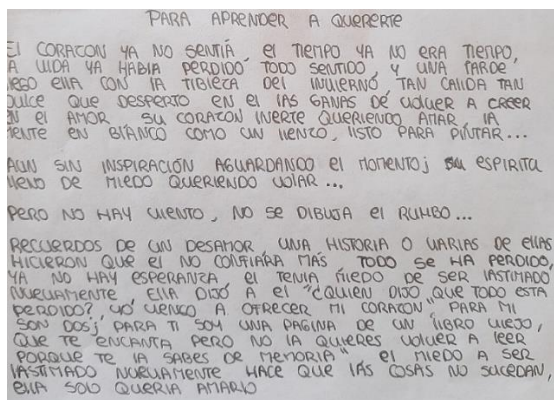 PARA APRENDER A QUERERTE
El CORAZON YA NO SENTIÁ, el TIEMPO YA NO ERA TIEMPO,
A VIDA YA HABIA PERDIDO TODO SENTIDO, Y UNA TARDE
EGO EllA CON lA TIBIEZA DEl INVIERNO, TAN CALIDA TAN
DULCE QUE DESPERTO EN El lAS GANAS DE VOlVER A CREER
EN El AMOR SU CORAZON INERTE QUERIENDO AMAR lA
MENTE EN BlANCO COMO UN lIENZO, lISTO PARA PINTAR...
AUN SIN INSPIRACIÓN AGUARDANDO el MOMENTO; SU ESPIRITU
llENO DE MIEDO QUERIENDO VOlAR ...
PERO NO HAY VIENTO, NO SE DIBUJA El RUMBO...
RECUERDOS DE UN DESAMOR, UNA HISTORIA O VARIAS DE EllAS
HICIERON QUE El NO CONFIARÁ MAS TODO SE HA PERDIDO,
YA NO HAY ESPERANZA El TENIA MIEDO DE SER lASTIMADO
NUEVAMENTE EllA DIJÓ A El "¿QUIEN DIJO QUE TODO ESTA
PERDIDO?, YO VENGO A OFRECER MI CORAZON" PARA MI
SON DOS; PARA TI SOY UNA PAGINA DE UN lIBRO VIEJO,
QUE TE ENCANTA PERO NO lA QUIERES VOlVER A lEER
PORQUE TE lA SABES DE MEMORIA" El MIEDO A SER
lASTIMADO NUEVAMENTE HACE QUE lAS COSAS NO SUCEDAN,
EllA SOlO QUERIA AMARlO